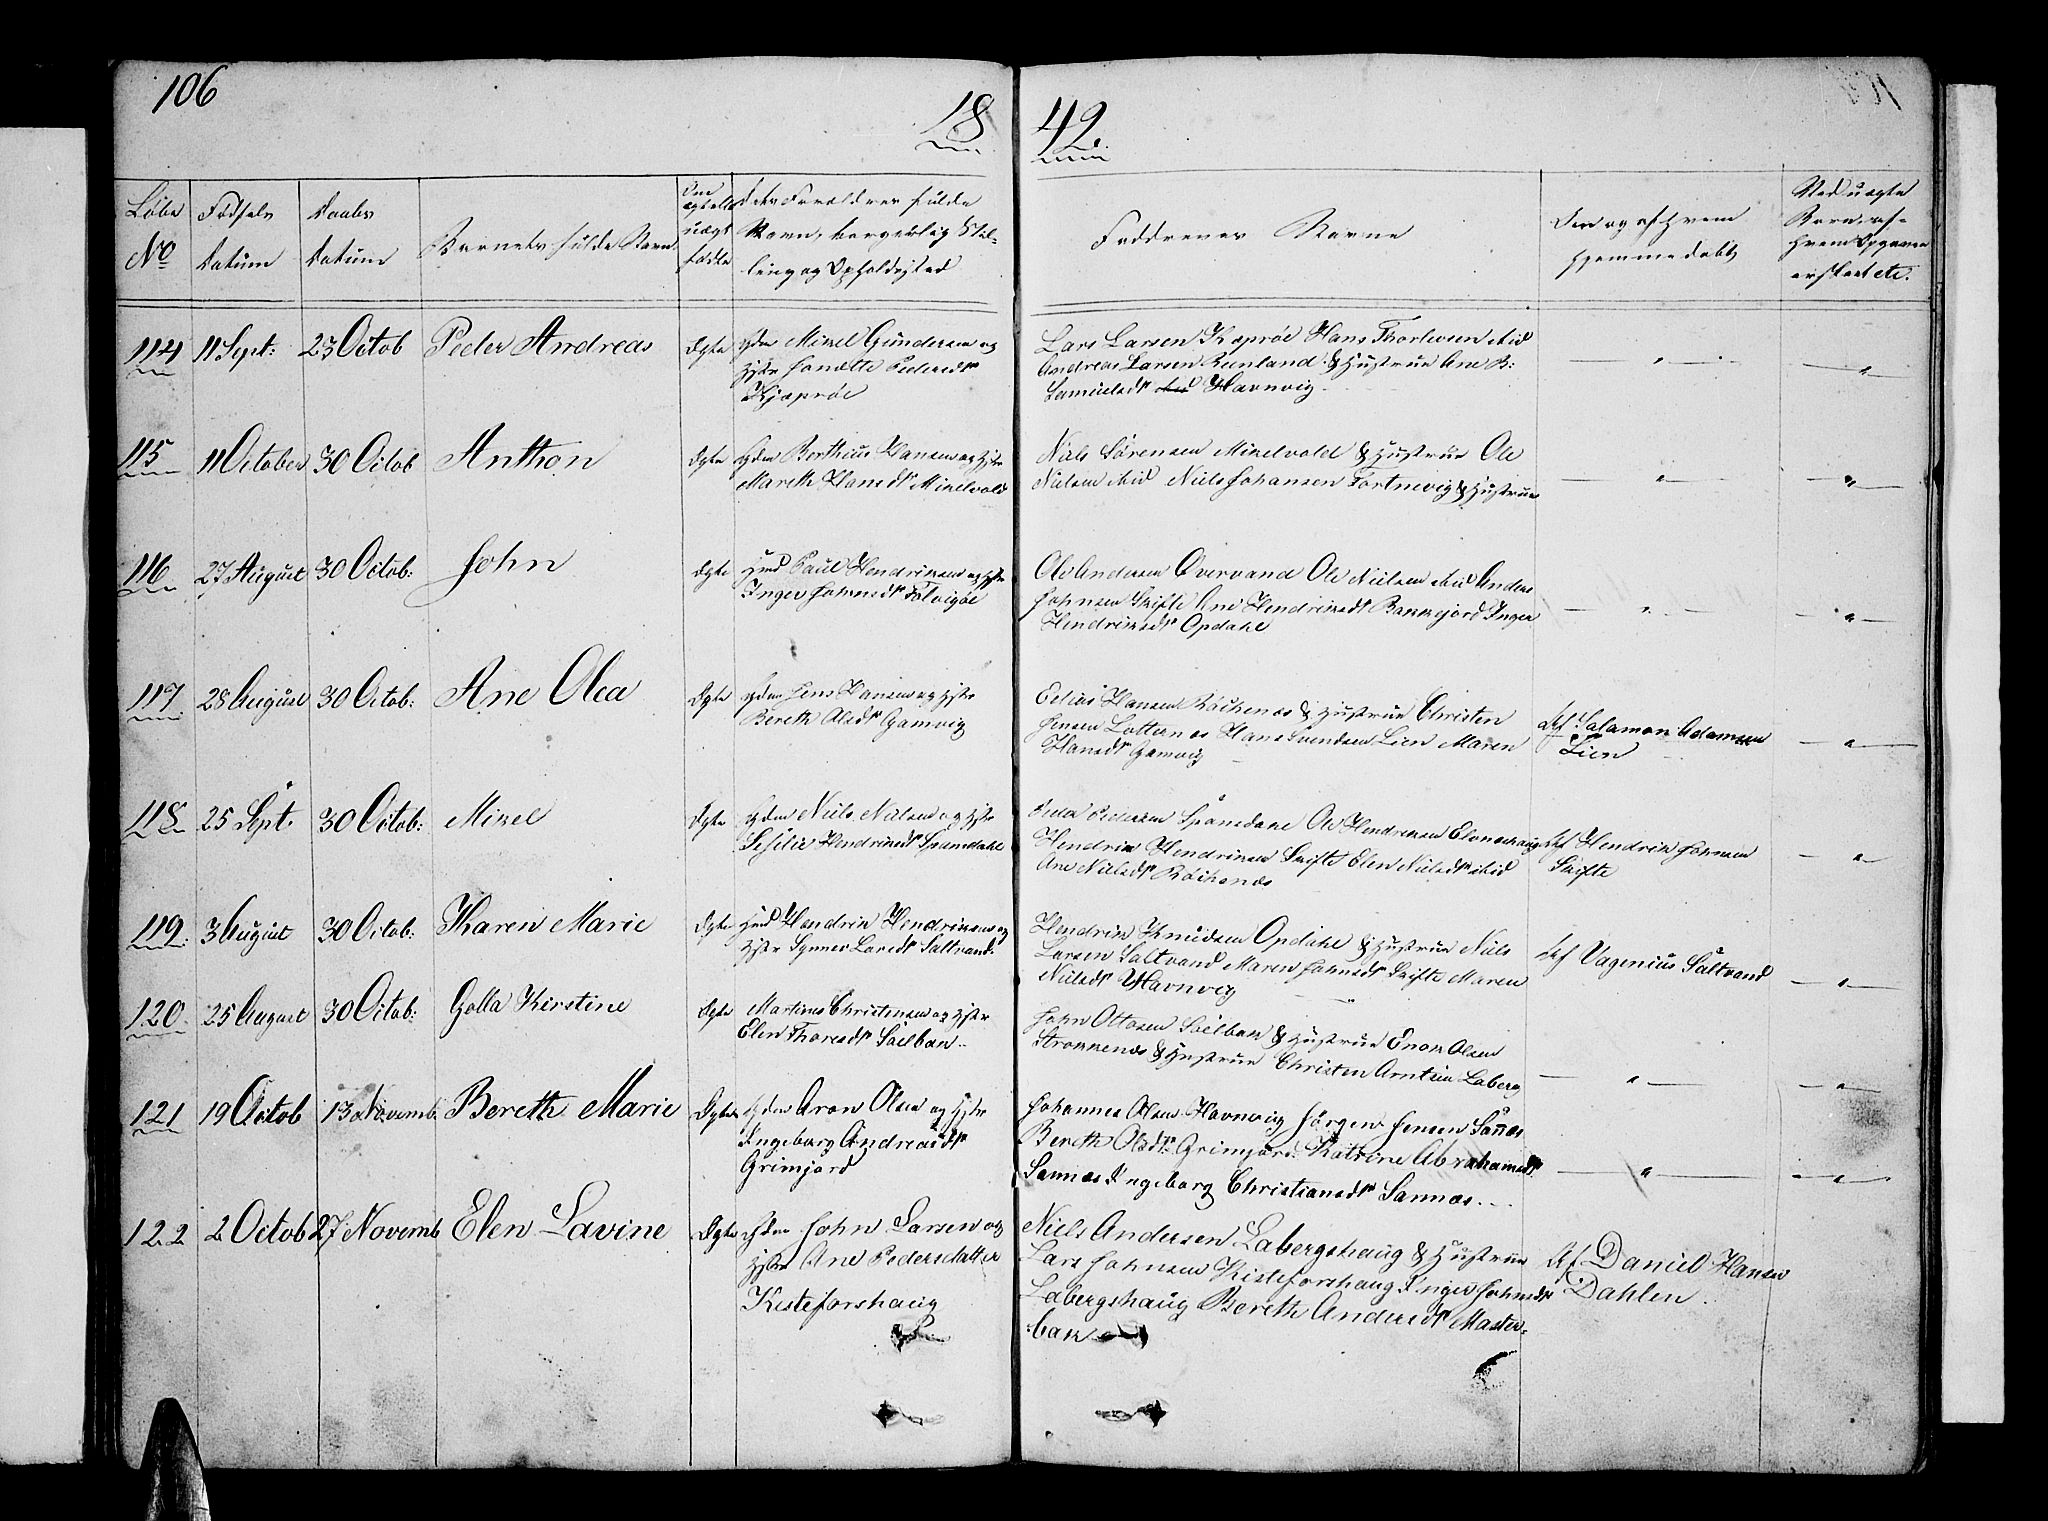 106
18 42.
Løbe No
Fødsels Datum
Daabs Datum
Barnets fulde Navn
Om ægte eller uægte fødte
dets Forældres fulde Navn, borgerlig Stilling og Opholdssted
Faddrenes Navne
Om og af hvem hjemmedøbt
Ved uægte Børn, af hvem Opgaven er skeet etc.
114 11 Sept: 23 Octob Peder Andreas Ægte
Mikel Gundersen og
Hstr Jonette Pedersdtr
Kjæprøe
Lars Larsen Hans Thorlevsen ibid
Andreas Larsen Renland & Hustrue Ane B:
Samuelsdtr Havnvig
115 11 October 30 Octob Anthon Ægte
Bertheus Hansen og Hstr
Mareth Hansdtr Mikelvold
Niels Sørensen Mikelvold & Hustrue Ole
Nielsen ibid Niels Johansen Tortnevig & Hustrue
116 27 August 30 Octob: John Ægte
Hmd Paul Hendriksen og Hstr
Inger Johnsdtr
Ole Andersen Overvand Ole Nielsen ibid Anders
Johnsen Skifte Ane Hendriksdtr Bakkejord Inger
Hendriksdtr Opdahl
117 28 August 30 Octob: Ane Olea Ægte
Jens Hansen og Hstr
Bereth Olsdtr Gamvig
Elias Hansen Røkenes & Hustrue Christen
Jensen Lotternes Hans Svendsen Lien Maren
Hansdtr Gamvig
Af Salamon Adamsen
Lien
118 25 Sept. 30 Octob: Mikel Ægte
Niels Nielsen og Hstr
Sesilie Hendriksdtr Spansdahl
Peder Pedersen Spansdahl Ole Hendriksen Elvenæs
Hendrik Hendriksen Skifte Elen Nielsdtr ibid
Ane Nielsdtr Røkenes
Af Hendrik Johnsen
Skifte
119 3 August 30 Octob: Karen Marie Ægte
Hmd Hendrik Hendriksen og
Hstr Synnev Larsdtr Saltvand:
Hendrik Knudsen Opdahl & Hustrue Niels
Larsen Saltvand Maren Johnsdtr Skifte Maren
Nielsdtr Havnvig
Af Vagenius Saltvand
120 25 August 30 Octob: Golla Kirstine Ægte
Martinus Christensen og Hstr
Elen Thoresdtr Soelbak
John Ottosen Soelbak & Hustrue Enok Olsen
Strokkenæs & Hustrue Christen Arntsen Laberg
121 19 Octob 13 Novemb. Bereth Marie Ægte
Aron Olsen og Hstr
Ingeborg Andreasdtr
Grimjord
Johannes Olsen Havnvig Jørgen Jensen Sannes
Bereth Olsdtr: Grimjord: Katrine Abrahamsdtr
Sannes Ingeborg Christiansdtr Sannes
122 2 Octob 27 Novemb Elen Lavine Ægte
John Larsen og
Hstr Ane Pedersdatter
Kisteforshaug
Niels Andersen Labergshaug & Hustrue
Lars Johnsen Kisteforshaug Inger Johnsdtr
Labergshaug Bereth Andersdtr Master-
bak
Af Daniel Hansen
Dahlen